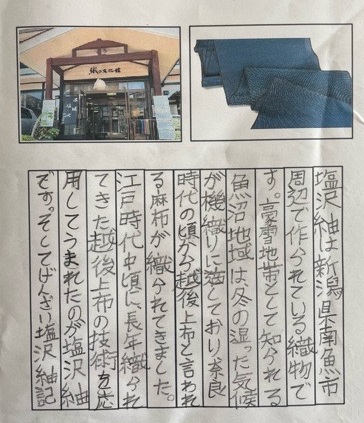 塩沢紬は新潟県南魚市
周辺で作られている織物で
す。豪雪地帯として知られる
魚沼地域は、冬の湿った気候
が機織りに適しており、奈良
時代の頃から越後上布と言われ
る麻布が織られてきました。
江戸時代中頃に長年織られ
てきた越後上布の技術を応
用してうまれたのが塩沢紬
です。そしてげんざい塩沢紬記